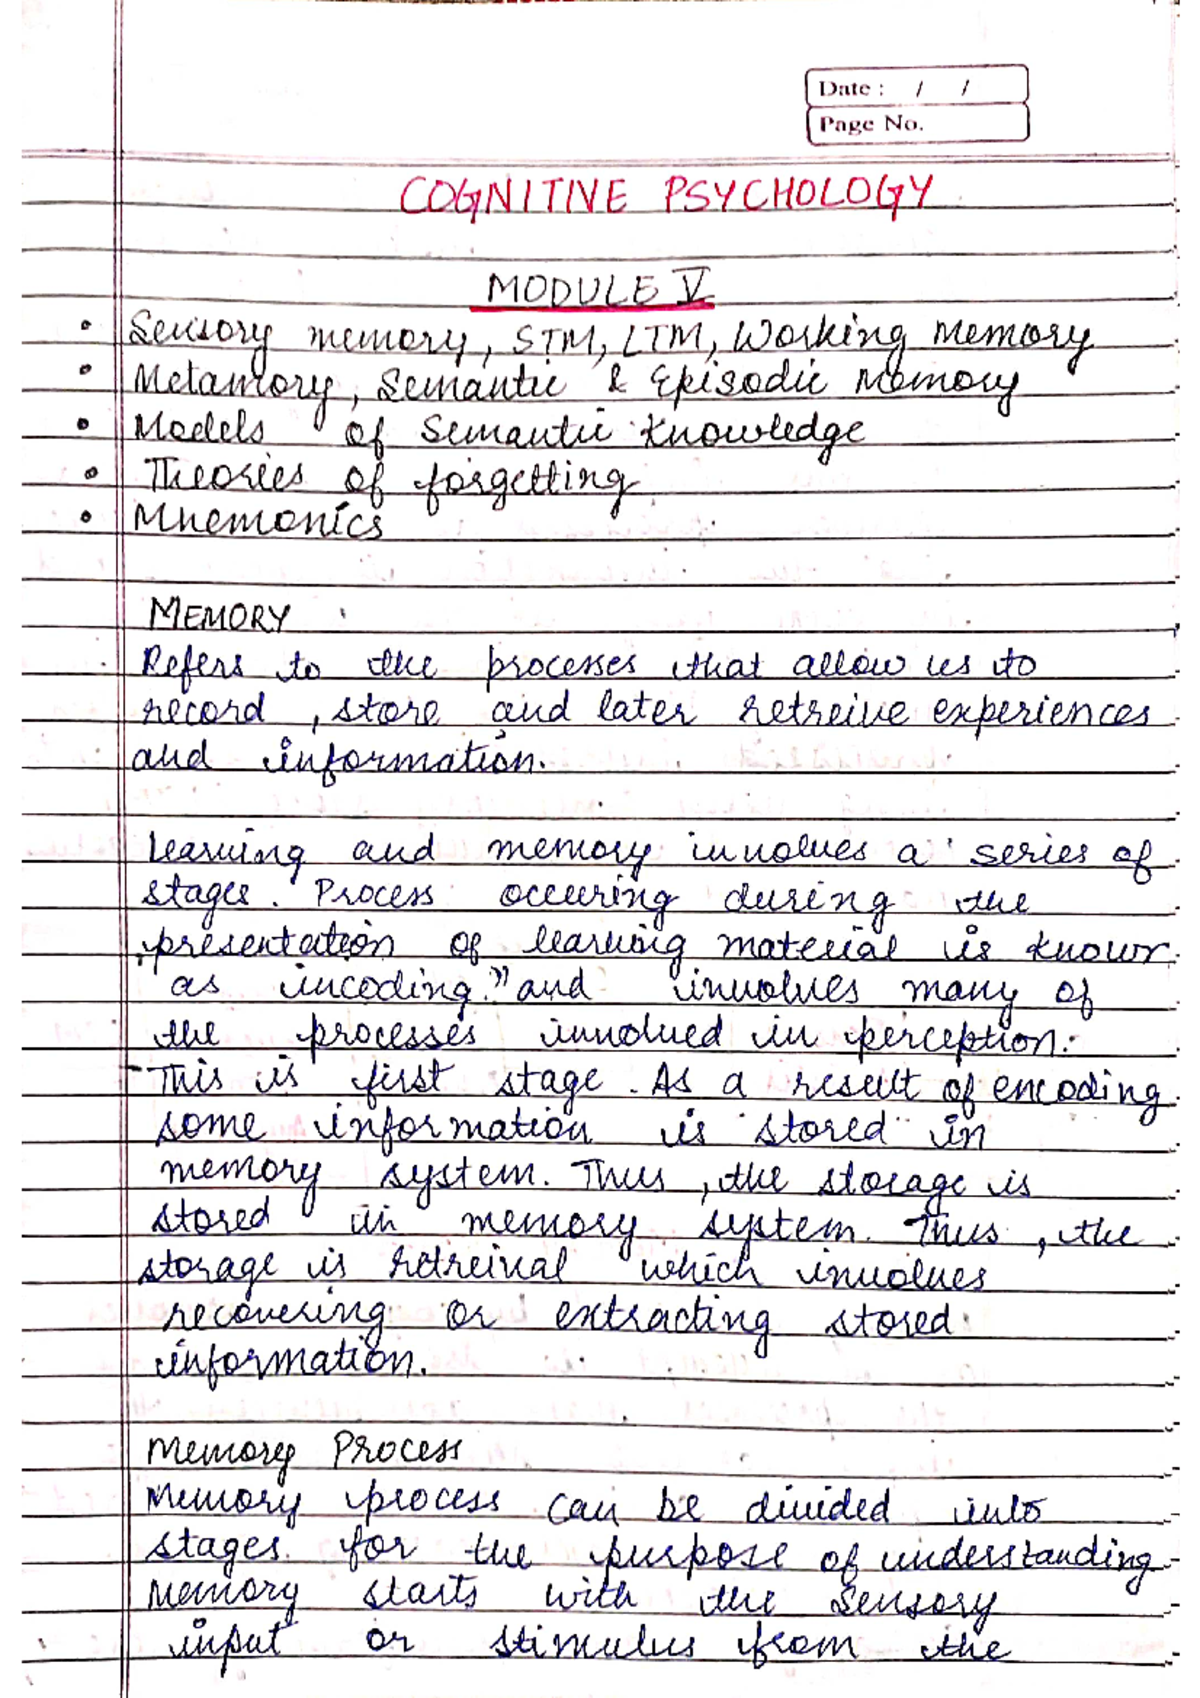 Date : / /
Page No.
COGNITIVE PSYCHOLOGY
MODULE V
• Sensory memory, STM, LTM, Working Memory
• Metamory, Semantic & Episodic Memory
• Models of Semantic Knowledge
• Theories of forgetting
• Mnemonics
MEMORY
Refers to the processes that allow us to
record, store and later retreive experiences
and information.
Learning and memory involves a series of
stages. Process occuring during the
presentation of learning material is known
as incoding." and involves many of
the processes involved in perception.
- This is first stage. As a result of encoding
some information is stored in
memory system. Thus, the storage is
stored in memory system. Thus, the
storage is retreival which involves
recovering or extracting stored
information.
Memory Process
Memory process can be divided into
stages. for the purpose of understanding
Memory starts with the Sensory
input or stimulus from the